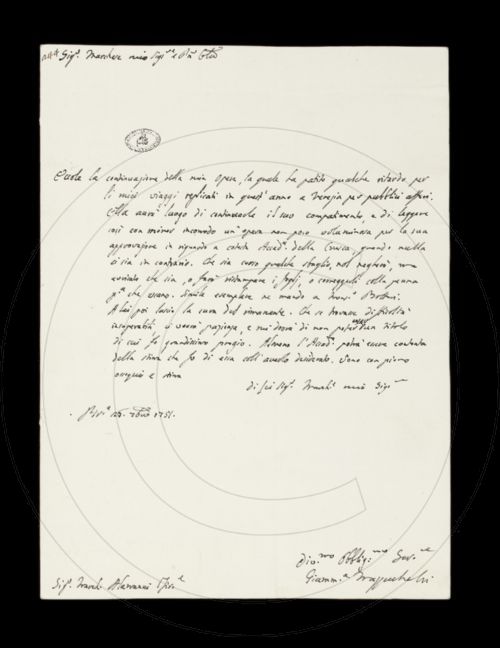 Sig.r Marchese mio Sig.re e P.ron Col.mo
Eccole la continuazione della mia opera, la quale ha patito qualche ritardo per
li miei viaggi replicati in quest' anno a Venezia per pubblici affari.
Ella avrà luogo di continuarle il suo compatimento, e di leggere
così con minor incomodo un' opera non poco voluminosa per la sua
approvazione in riguardo a cotesta Accad.a della Crusca, quando nulla
ci sia in contrario. Che sia corso qualche sbaglio, nol negherò, ma
avvisato che sia, o farò ristampare i fogli, o correggerli colla penna
p.a che escano. Simile esemplare ne mando a Mons.r Bottari.
A lui poi lascio la cura del rimanente. Che se trovasse difficoltà
insuperabili, ci vorrà pazienza, e mi dorrà di non poter un titolo
di cui fo grandissimo pregio. Almeno l' Accad.a potrà essere contenta
della stima che fo di essa coll' averlo desiderato. Sono con pieno
ossequio e stima
di Lei Sig.r March.e mio Sig.re
1751.
Sig.r March. Alamanni
Div.mo Obblig.mo Ser.re
Giamm.a Mazzuchelli